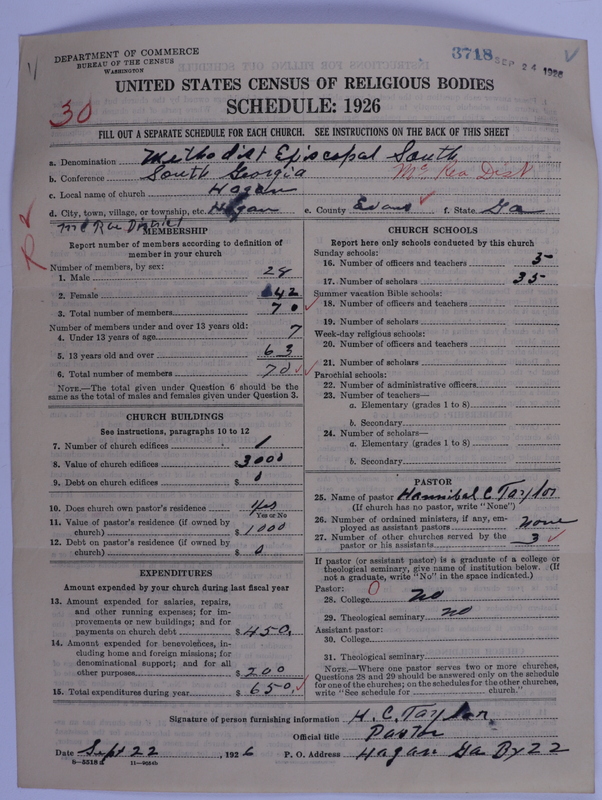 DEPARTMENT OF COMMERCE
BUREAU OF THE CENSUS
WASHINGTON
3718 SEP 24 1926
UNITED STATES CENSUS OF RELIGIOUS BODIES
SCHEDULE: 1926
30
FILL OUT A SEPARATE SCHEDULE FOR EACH CHURCH. SEE INSTRUCTIONS ON THE BACK OF THIS SHEET
a. Denomination Methodist Episcopal South
b. Conference South Georgia Mc Rea Dist
c. Local name of church Hagan
d. City, town, village, or township, etc. Hagan e. County Evans f. State Ga
Mc Rae District
R
MEMBERSHIP
Report number of members according to definition of
member in your church
Number of members, by sex:
1. Male 28
2. Female 42
3. Total number of members 70
Number of members under and over 13 years old:
4. Under 13 years of age 7
5. 13 years old and over 63
6. Total number of members 70
NOTE.—The total given under Question 6 should be the
same as the total of males and females given under Question 3.
CHURCH BUILDINGS
See instructions, paragraphs 10 to 12
7. Number of church edifices 1
8. Value of church edifices $3000
9. Debt on church edifices $ 0
10. Does church own pastor's residence Yes
Yes or No
11. Value of pastor's residence (if owned by
church) $1000
12. Debt on pastor's residence (if owned by
church) $ 0
EXPENDITURES
Amount expended by your church during last fiscal year
13. Amount expended for salaries, repairs,
and other running expenses; for im-
provements or new buildings; and for
payments on church debt $450.
14. Amount expended for benevolences, in-
cluding home and foreign missions; for
denominational support; and for all
other purposes $200
15. Total expenditures during year $ 650.
CHURCH SCHOOLS
Report here only schools conducted by this church
Sunday schools:
16. Number of officers and teachers 5
17. Number of scholars 35
Summer vacation Bible schools:
18. Number of officers and teachers
19. Number of scholars
Week-day religious schools:
20. Number of officers and teachers
21. Number of scholars
Parochial schools:
22. Number of administrative officers
23. Number of teachers—
a. Elementary (grades 1 to 8)
b. Secondary
24. Number of scholars—
a. Elementary (grades 1 to 8)
b. Secondary
PASTOR
25. Name of pastor Hannibal C Taylor
(If church has no pastor, write "None")
26. Number of ordained ministers, if any, em-
ployed as assistant pastors none
27. Number of other churches served by the
pastor or his assistants 3
If pastor (or assistant pastor) is a graduate of a college or
theological seminary, give name of institution below. (If
not a graduate, write "No" in the space indicated.)
Pastor: 0
28. College no
29. Theological seminary no
Assistant pastor:
30. College
31. Theological seminary
NOTE.—Where one pastor serves two or more churches,
Questions 28 and 29 should be answered only on the schedule
for one of the churches; on the schedules for the other churches,
write "See schedule for church."
Signature of person furnishing information H. C. Taylor
Official title Pastor
Date Sept 22, 1926 P. O. Address Hagan Ga Bx 22